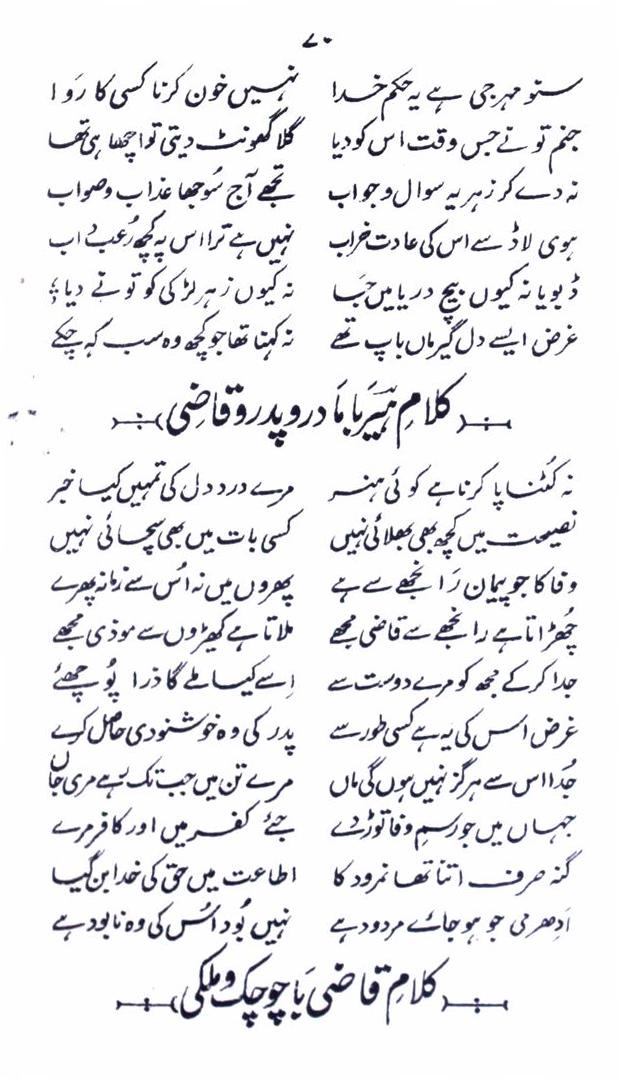 ۷۰
سنو مہر جی ہے یہ حکم خدا نہیں خون کرنا کسی کا رَوا
جنم تو نے جس وقت اس کو دیا گلا گھونٹ دیتی تو اچھا ہی تھا
نہ دے کر زہر یہ سوال و جواب تجھے آج سُوجھا عذاب و صواب
ہوی لاڈ سے اس کی عادت خراب نہیں ہے ترا اس پہ کچھ رُعب داب
ڈبویا نہ کیوں بیچ دریا میں جَا نہ کیوں زہر لڑکی کو تو نے دیا؟
غرض ایسے دل گیر ماں باپ تھے نہ کہنا تھا جو کچھ وہ سب کہ چکے
کلامِ ہیر بَا مَادر و پدر و قاضِی
نہ کُٹناپا کرنا ہے کوئی ہنر مرے درد دل کی تمہیں کیا خبر
نصیحت میں کچھ بھی بھلائی نہیں کسی بات میں بھی سچائی نہیں
وفا کا جو پیمان رَانجھے سے ہے پھروں میں نہ اُس سے زمانہ پھرے
چُھڑاتا ہے رانجھے سے قاضی مجھے ملاتا ہے کھیڑوں سے موذی مجھے
جدا کر کے مجھ کو مرے دوست سے اِسے کیا ملے گا ذرا پُوچھئے
غرض اس کی یہ ہے کسی طور سے پدر کی وہ خوشنودی حاصل کرے
جُدا اس سے ہرگز نہیں ہوں گی ماں مرے تن میں جب تک رہے مری جاں
جہاں میں جو رسمِ وفا توڑ دے جئے کفر میں اور کافر مرے
گنہ صرف اتنا تھا نمرود کا اطاعت میں حق کی خدا بن گیا
اَدھرمی جو ہو جائے مردود ہے نہیں بُود اُس کی وہ نابود ہے
کلامِ قاضی بَا چوچک و ملکی